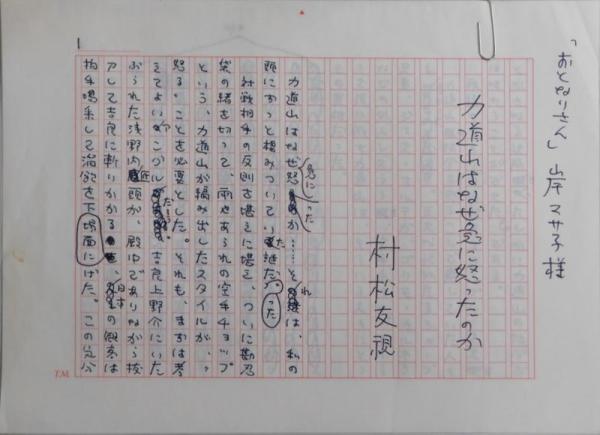 「おとなりさん」 岸マサ子様
力道山はなぜ急に怒ったのか
村松友視
1
力道山はなぜ急に怒ったか……とれは、私の
頭にずっと棲みついていた謎だった。
対戦相手の反則を堪えに堪え、ついに勘忍
袋の緒を切って、雨やあられの空手チョップ
という、力道山が編み出したスタイルが、
怒る〟ことを必要とした。それも、まずは考
えてよい
吉良上野介にいた
ぶられた浅野内匠頭が、殿中でありながら抜
刀して吉良に斬りかかる、日本の観客は
拍手喝采して溜飲を下げた。この気分
場面に
T.M.